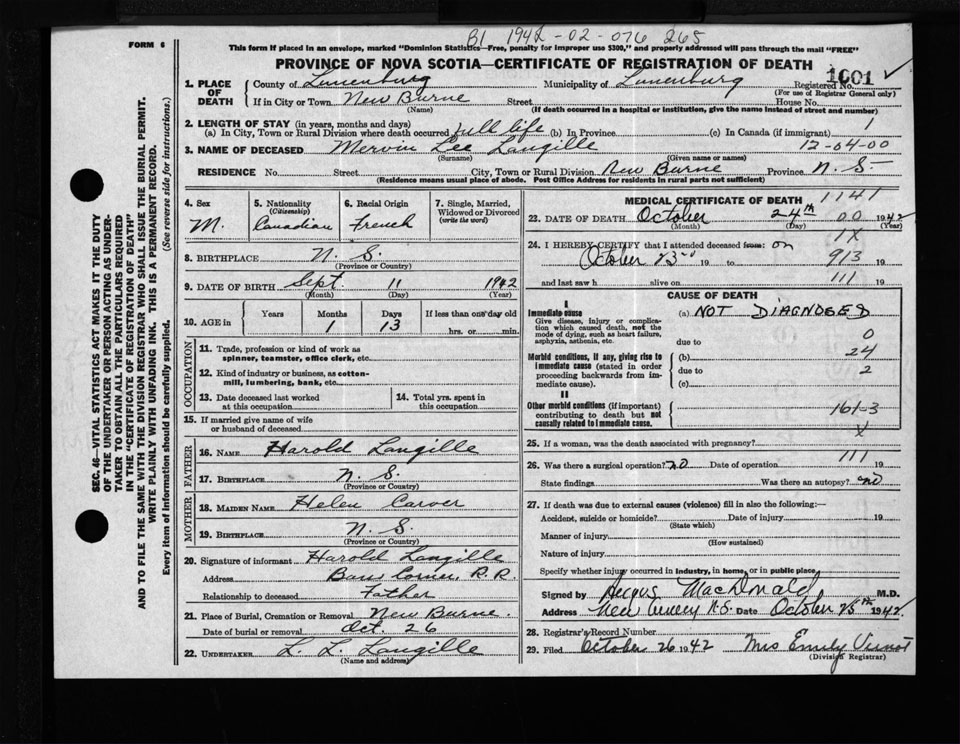 B1 1942-02-076 265
FORM 6
This form if placed in an envelope, marked "Dominion Statistics—Free, penalty for improper use $300," and properly addressed will pass through the mail "FREE"
PROVINCE OF NOVA SCOTIA—CERTIFICATE OF REGISTRATION OF DEATH
1. PLACE OF DEATH
County of Lunenburg Municipality of Lunenburg Registered No. 1601 ✓
(For use of Registrar General only)
If in City or Town New Burne Street House No.
(Name) (If death occurred in a hospital or institution, give the name instead of street and number)
2. LENGTH OF STAY (in years, months and days)
(a) In City, Town or Rural Division where death occurred full life (b) In Province (c) In Canada (if immigrant) 1
3. NAME OF DECEASED Mervin Lee Langille 12-04-00
(Surname) (Given name or names)
RESIDENCE No. Street City, Town or Rural Division New Burne Province N. S.
(Residence means usual place of abode. Post Office Address for residents in rural parts not sufficient)
4. Sex M.
5. Nationality (Citizenship) Canadian
6. Racial Origin French
7. Single, Married, Widowed or Divorced (write the word)
8. BIRTHPLACE N. S.
(Province or Country)
9. DATE OF BIRTH Sept. 11 1942
(Month) (Day) (Year)
10. AGE in Years Months 1 Days 13 If less than one day old hrs. or min.
OCCUPATION
11. Trade, profession or kind of work as spinner, teamster, office clerk, etc.
12. Kind of industry or business, as cotton-mill, lumbering, bank, etc.
13. Date deceased last worked at this occupation
14. Total yrs. spent in this occupation
15. If married give name of wife or husband of deceased
FATHER
16. NAME Harold Langille
17. BIRTHPLACE N. S.
(Province or Country)
MOTHER
18. MAIDEN NAME Helen Carver
19. BIRTHPLACE N. S.
(Province or Country)
20. Signature of informant Harold Langille
Address Barss Corner, R.R.
Relationship to deceased Father
21. Place of Burial, Cremation or Removal New Burne.
Date of burial or removal Oct. 26
22. UNDERTAKER L. L. Langille
(Name and address)
MEDICAL CERTIFICATE OF DEATH 1141
23. DATE OF DEATH October 24th 00 1942
(Month) (Day) (Year)
24. I HEREBY CERTIFY that I attended deceased from: on 1X
October 23rd 19 to 913
and last saw h alive on 111 19
CAUSE OF DEATH
I
Immediate cause
Give disease, injury or complication which caused death, not the mode of dying, such as heart failure, asphyxia, asthenia, etc.
(a) NOT DIAGNOSED
due to 0
Morbid conditions, if any, giving rise to immediate cause (stated in order proceeding backwards from immediate cause).
(b) 24
due to 2
(c)
II
Other morbid conditions (if important) contributing to death but not causally related to immediate cause.
161-3
X
25. If a woman, was the death associated with pregnancy?
26. Was there a surgical operation? no Date of operation 111 19
State findings Was there an autopsy? no
27. If death was due to external causes (violence) fill in also the following:—
Accident, suicide or homicide? Date of injury 19
(State which)
Manner of injury
(How sustained)
Nature of injury
Specify whether injury occurred in industry, in home, or in public place
Signed by Angus MacDonald M.D.
Address N.S. Date October 25th 1942 ✓
28. Registrar's Record Number
29. Filed October 26 1942 Mrs Emily
(Division Registrar)
SEC. 46—VITAL STATISTICS ACT MAKES IT THE DUTY
OF THE UNDERTAKER OR PERSON ACTING AS UNDER-
TAKER TO OBTAIN ALL THE PARTICULARS REQUIRED
IN THE "CERTIFICATE OF REGISTRATION OF DEATH"
AND TO FILE THE SAME WITH THE DIVISION REGISTRAR WHO SHALL ISSUE THE BURIAL PERMIT.
WRITE PLAINLY WITH UNFADING INK. THIS IS A PERMANENT RECORD.
Every item of information should be carefully supplied. (See reverse side for instructions.)